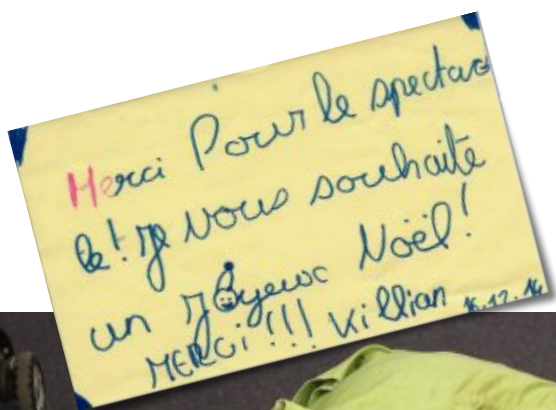 Merci Pour le spectac
le! Je vous souhaite
un Joyeux Noël!
MERCI!!! Killian 16.12.14